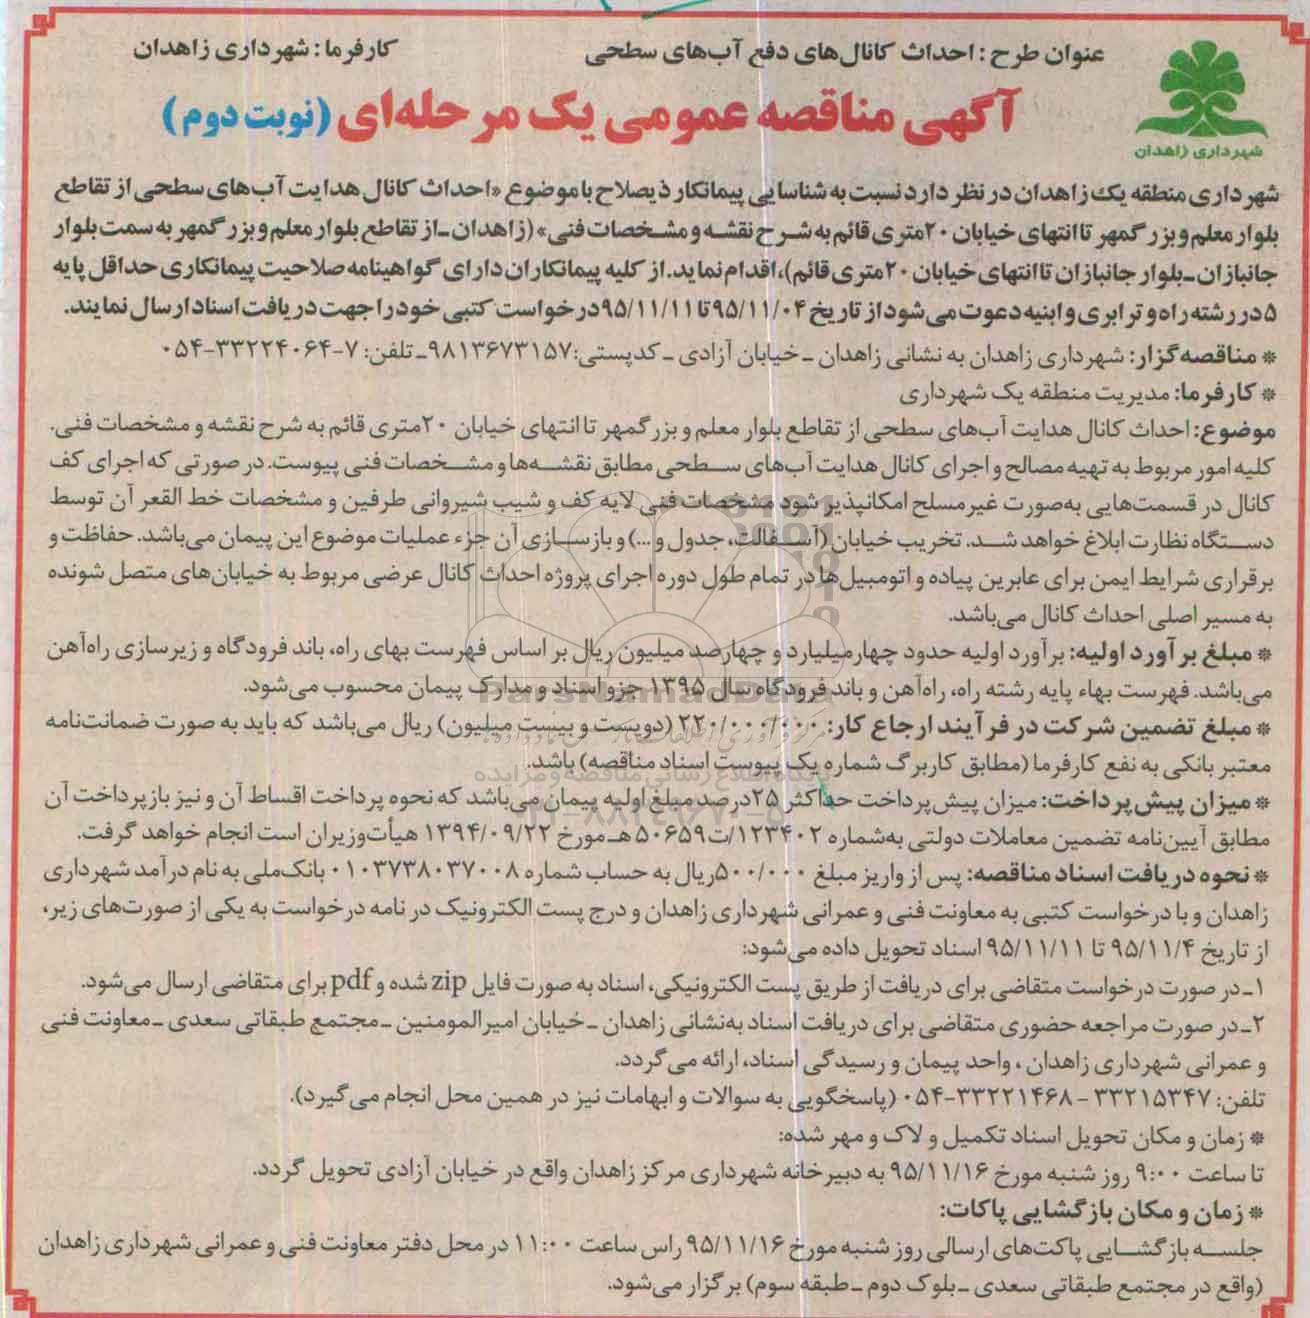 عنوان طرح : احداث کانال‌های دفع آب‌های سطحی
کارفرما : شهرداری زاهدان
آگهی مناقصه عمومی یک مرحله‌ای (نوبت دوم)
شهرداری زاهدان
شهرداری منطقه یک زاهدان در نظر دارد نسبت به شناسایی پیمانکار ذیصلاح با موضوع «احداث کانال هدایت آب‌های سطحی از تقاطع
بلوار معلم و بزرگمهر تا انتهای خیابان ۲۰متری قائم به شرح نقشه و مشخصات فنی» (زاهدان ـ از تقاطع بلوار معلم و بزرگمهر به سمت بلوار
جانبازان ـ بلوار جانبازان تا انتهای خیابان ۲۰متری قائم)، اقدام نماید. از کلیه پیمانکاران دارای گواهینامه صلاحیت پیمانکاری حداقل پایه
۵ در رشته راه و ترابری و ابنیه دعوت می‌شود از تاریخ ۹۵/۱۱/۰۴ تا ۹۵/۱۱/۱۱ درخواست کتبی خود را جهت دریافت اسناد ارسال نمایند.
* مناقصه‌گزار: شهرداری زاهدان به نشانی زاهدان ـ خیابان آزادی ـ کدپستی: ۹۸۱۳۶۷۳۱۵۷ـ تلفن: ۷-۳۳۲۲۴۰۶۴-۰۵۴
* کارفرما: مدیریت منطقه یک شهرداری
موضوع: احداث کانال هدایت آب‌های سطحی از تقاطع بلوار معلم و بزرگمهر تا انتهای خیابان ۲۰متری قائم به شرح نقشه و مشخصات فنی.
کلیه امور مربوط به تهیه مصالح و اجرای کانال هدایت آب‌های سطحی مطابق نقشه‌ها و مشخصات فنی پیوست. در صورتی که اجرای کف
کانال در قسمت‌هایی به‌صورت غیرمسلح امکانپذیر شود مشخصات فنی لایه کف و شیب شیروانی طرفین و مشخصات خط القعر آن توسط
دستگاه نظارت ابلاغ خواهد شد. تخریب خیابان (آسفالت، جدول و...) و بازسازی آن جزء عملیات موضوع این پیمان می‌باشد. حفاظت و
برقراری شرایط ایمن برای عابرین پیاده و اتومبیل‌ها در تمام طول دوره اجرای پروژه احداث کانال عرضی مربوط به خیابان‌های متصل شونده
به مسیر اصلی احداث کانال می‌باشد.
* مبلغ برآورد اولیه: برآورد اولیه حدود چهارمیلیارد و چهارصد میلیون ریال بر اساس فهرست بهای راه، باند فرودگاه و زیرسازی راه‌آهن
می‌باشد. فهرست بهاء پایه رشته راه، راه‌آهن و باند فرودگاه سال ۱۳۹۵ جزو اسناد و مدارک پیمان محسوب می‌شود.
* مبلغ تضمین شرکت در فرآیند ارجاع کار: ۲۲۰/۰۰۰/۰۰۰ (دویست و بیست میلیون) ریال می‌باشد که باید به صورت ضمانت‌نامه
معتبر بانکی به نفع کارفرما (مطابق کاربرگ شماره یک پیوست اسناد مناقصه) باشد.
* میزان پیش‌پرداخت: میزان پیش‌پرداخت حداکثر ۲۵درصد مبلغ اولیه پیمان می‌باشد که نحوه پرداخت اقساط آن و نیز بازپرداخت آن
مطابق آیین‌نامه تضمین معاملات دولتی به‌شماره ۱۲۳۴۰۲/ت۵۰۶۵۹ هـ مورخ ۱۳۹۴/۰۹/۲۲ هیأت‌وزیران است انجام خواهد گرفت.
* نحوه دریافت اسناد مناقصه: پس از واریز مبلغ ۵۰۰/۰۰۰ریال به حساب شماره ۰۱۰۳۷۳۸۰۳۷۰۰۸ بانک‌ملی به نام درآمد شهرداری
زاهدان و با درخواست کتبی به معاونت فنی و عمرانی شهرداری زاهدان و درج پست الکترونیک در نامه درخواست به یکی از صورت‌های زیر،
از تاریخ ۹۵/۱۱/۴ تا ۹۵/۱۱/۱۱ اسناد تحویل داده می‌شود:
۱ـ در صورت درخواست متقاضی برای دریافت از طریق پست الکترونیکی، اسناد به صورت فایل zip شده و pdf برای متقاضی ارسال می‌شود.
۲ـ در صورت مراجعه حضوری متقاضی برای دریافت اسناد به‌نشانی زاهدان ـ خیابان امیرالمومنین ـ مجتمع طبقاتی سعدی ـ معاونت فنی
و عمرانی شهرداری زاهدان ، واحد پیمان و رسیدگی اسناد، ارائه می‌گردد.
تلفن: ۳۳۲۱۵۳۴۷ - ۳۳۲۲۱۴۶۸-۰۵۴ (پاسخگویی به سوالات و ابهامات نیز در همین محل انجام می‌گیرد).
* زمان و مکان تحویل اسناد تکمیل و لاک و مهر شده:
تا ساعت ۹:۰۰ روز شنبه مورخ ۹۵/۱۱/۱۶ به دبیرخانه شهرداری مرکز زاهدان واقع در خیابان آزادی تحویل گردد.
* زمان و مکان بازگشایی پاکات:
جلسه بازگشایی پاکت‌های ارسالی روز شنبه مورخ ۹۵/۱۱/۱۶ راس ساعت ۱۱:۰۰ در محل دفتر معاونت فنی و عمرانی شهرداری زاهدان
(واقع در مجتمع طبقاتی سعدی ـ بلوک دوم ـ طبقه سوم) برگزار می‌شود.